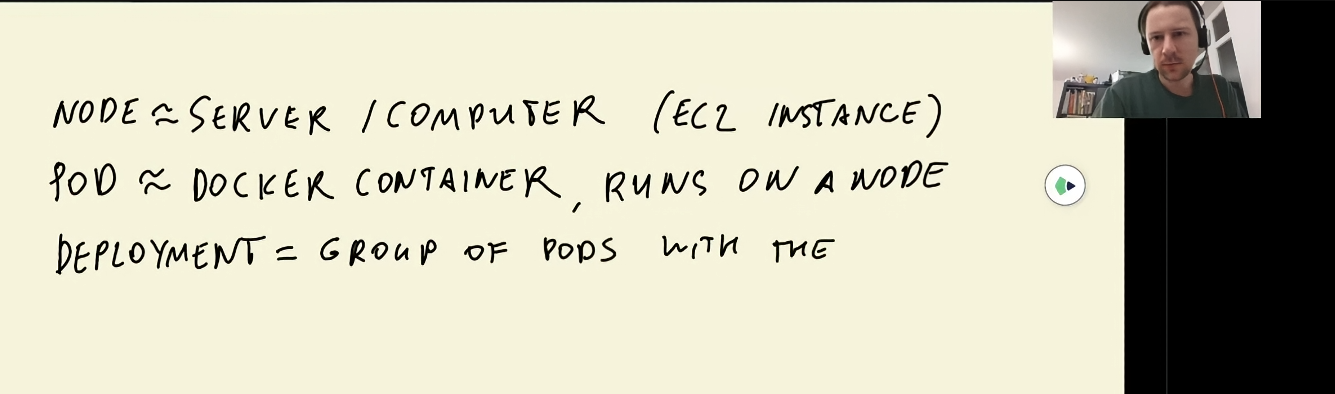 NODE ≈ SERVER / COMPUTER (EC2 INSTANCE)
POD ≈ DOCKER CONTAINER, RUNS ON A NODE
DEPLOYMENT = GROUP OF PODS WITH THE